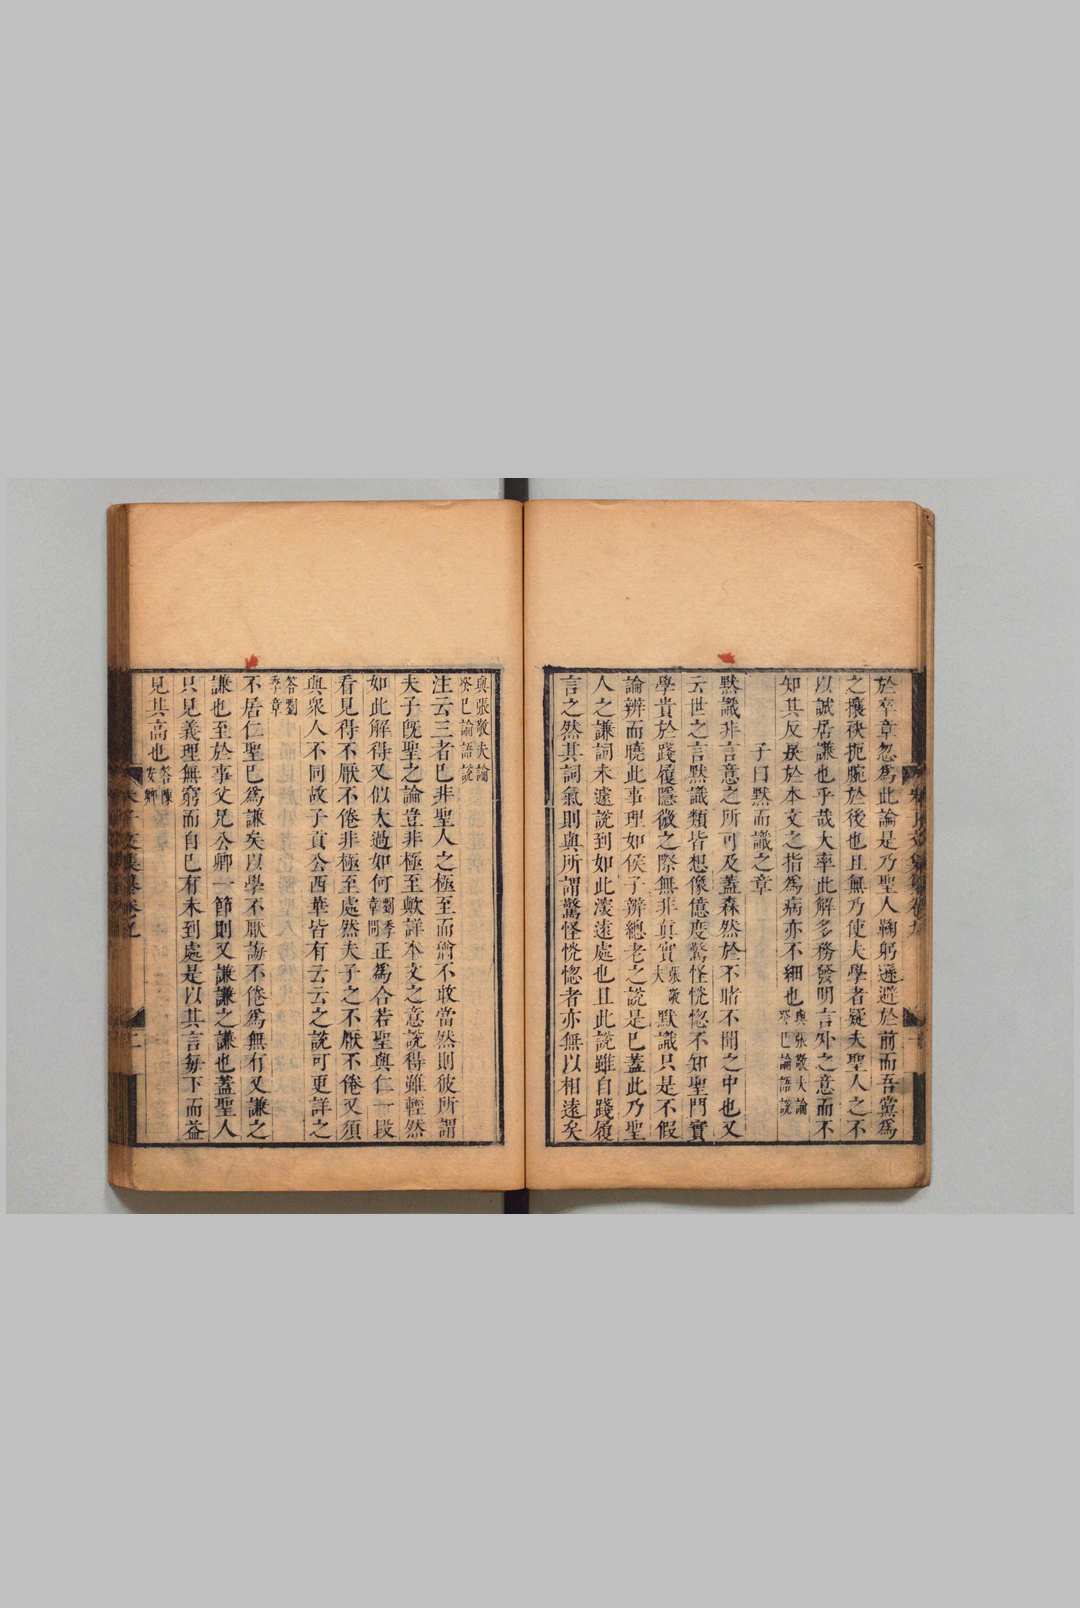 於卒章忽為此論是乃聖人鞠躬遜避於前而吾黨為
之攘袂扼腕於後也且無乃使夫學者疑夫聖人之不
以誠居謙也乎哉大率此解多務發明言外之意而不
知其反戾於本文之指為病亦不細也與張敬夫論癸巳論語說
子曰默而識之章
默識非言意之所可及蓋森然於不睹不聞之中也又
云世之言默識類皆想像億度驚怪恍惚不知聖門實
學貴於踐履隱微之際無非真實張敬夫默識只是不假
論辨而曉此事理如侯子辨總老之說是已蓋此乃聖
人之謙詞未遽說到如此深遠處也且此說雖自踐履
言之然其詞氣則與所謂驚怪恍惚者亦無以相遠矣
與張敬夫論癸巳論語說
注云三者已非聖人之極至而猶不敢當然則彼所謂
夫子既聖之論豈非極至歟詳本文之意說得雖輕然
如此解得又似太過如何劉季章問正為合若聖與仁一段
看見得不厭不倦非極至處然夫子之不厭不倦又須
與眾人不同故子貢公西華皆有云云之說可更詳之
答劉季章
不居仁聖已為謙矣以學不厭誨不倦為無有又謙之
謙也至於事父兄公卿一節則又謙謙之謙也蓋聖人
只見義理無窮而自已有未到處是以其言每下而益
見其高也答陳安卿